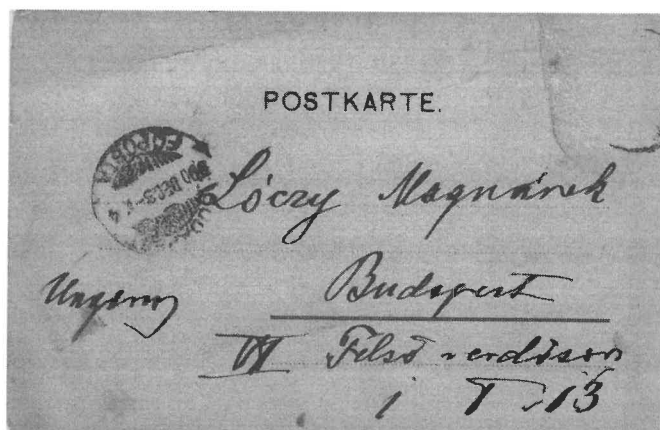 POSTKARTE.
Lóczy Magnának
Ungarn
Budapest
VI Felső erdősor